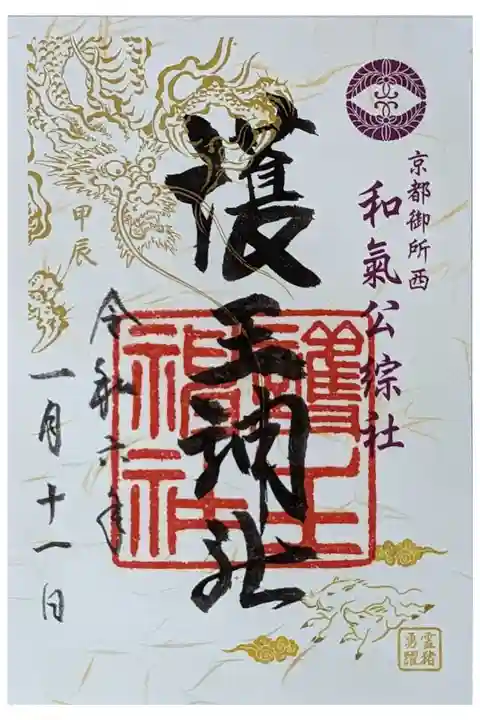 京都御所西
和氣公綜社
護王神社
護王
神社
甲辰
令和六年
一月十一日
霊猪
勇躍